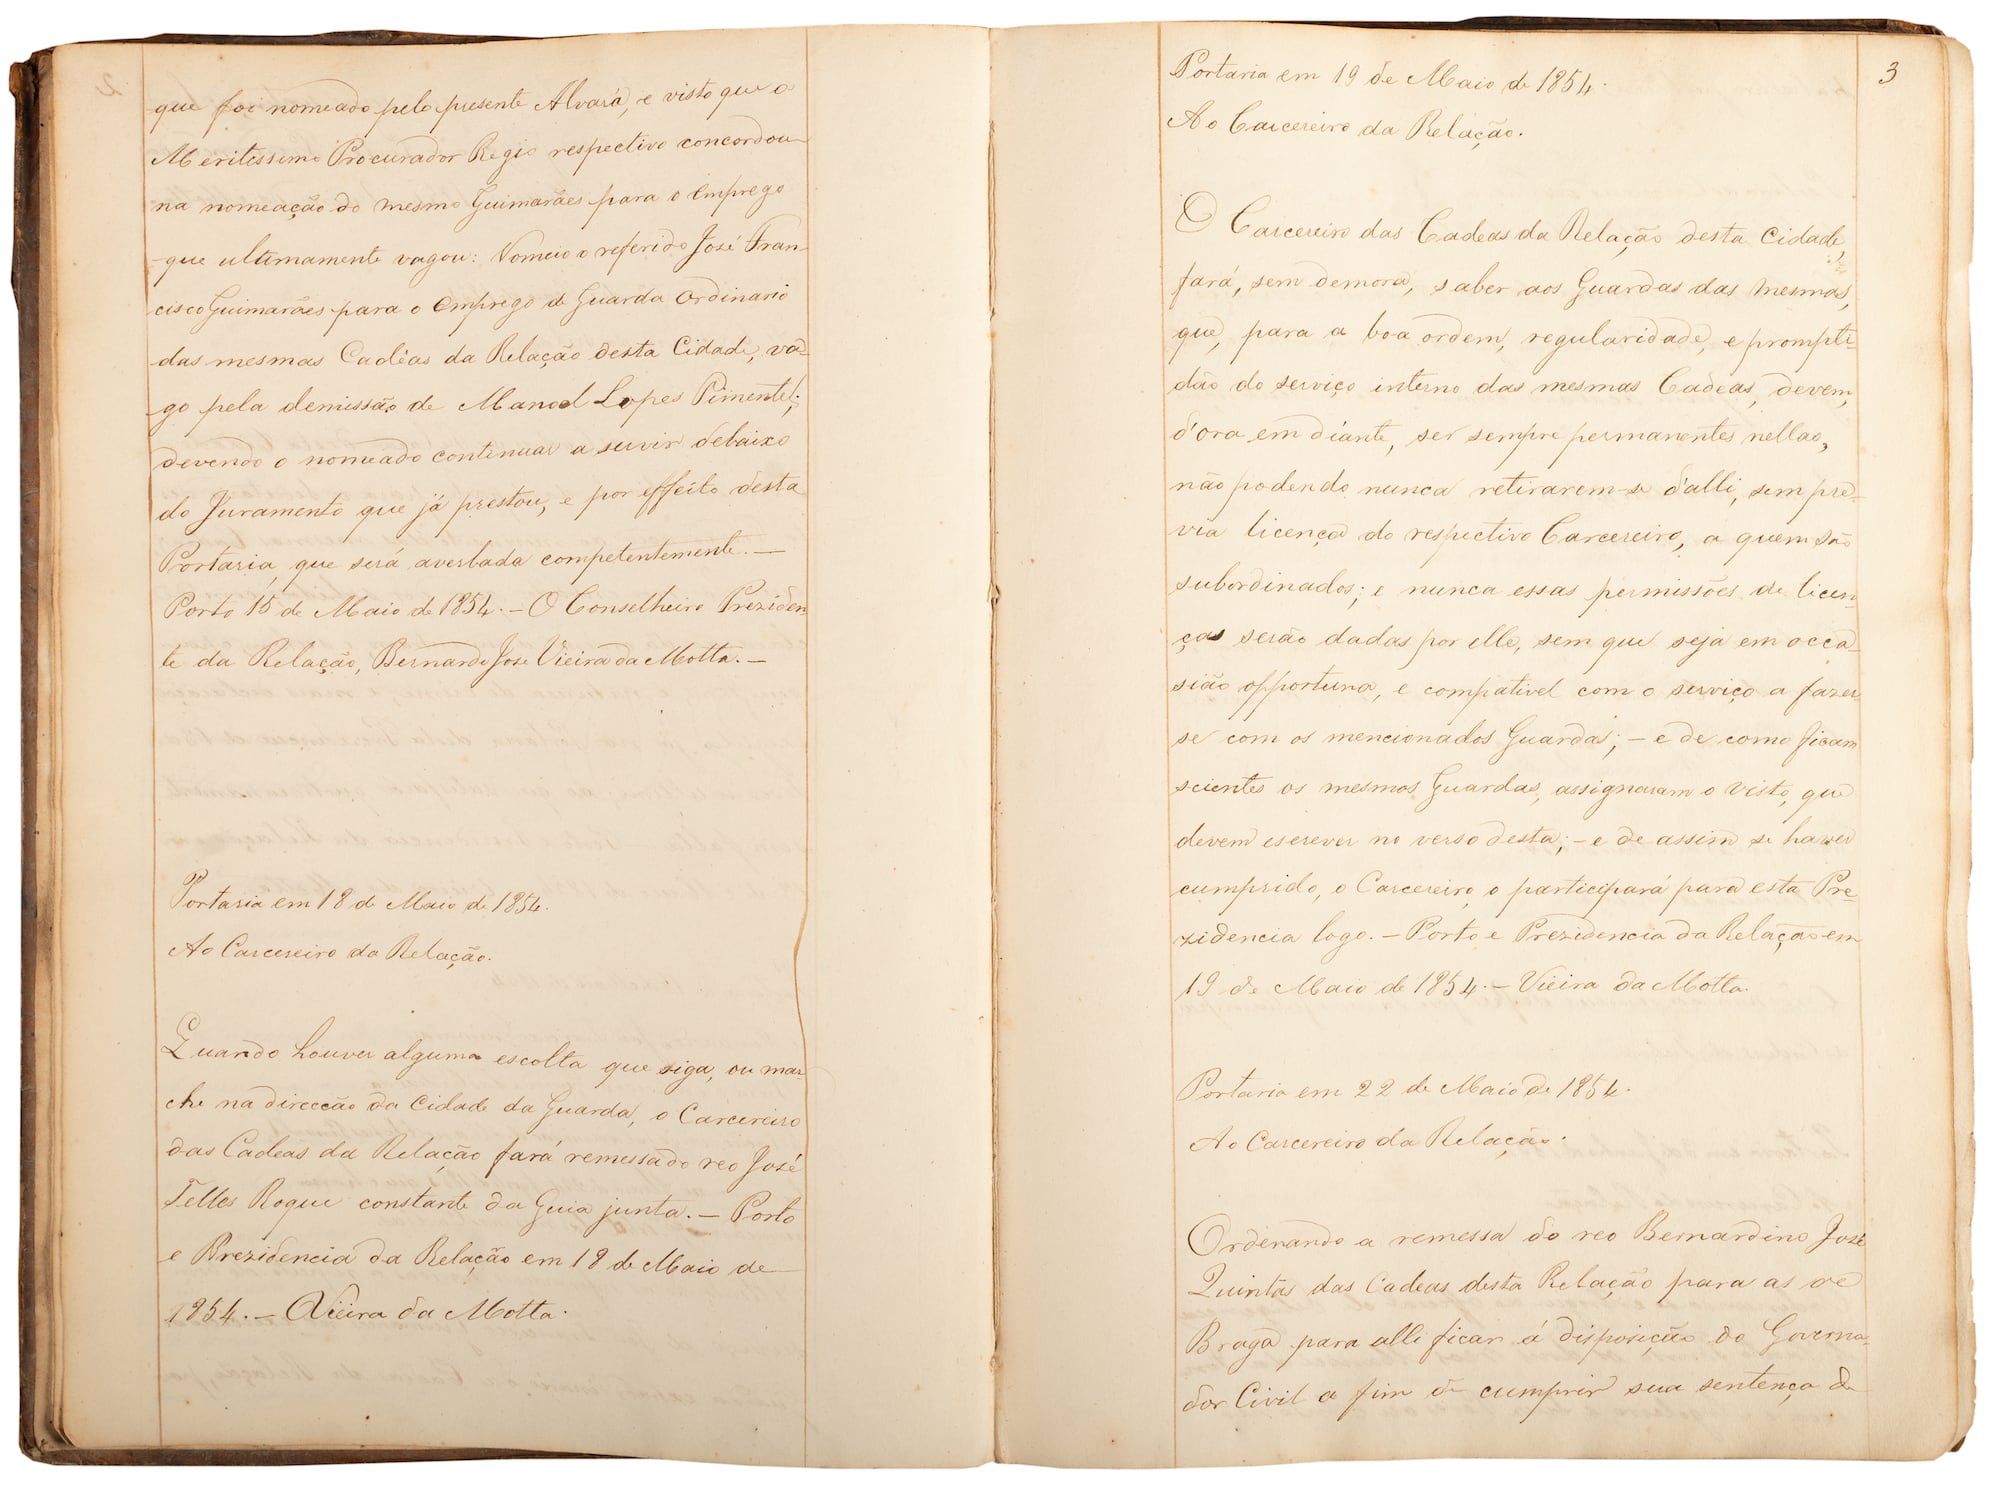 que foi nomeado pelo presente Alvará, e visto que o
Meritissimo Procurador Regio respectivo concordou
na nomeação do mesmo Guimarães para o emprego
que ultimamente vagou: Nomeio o referido José Fran-
cisco Guimarães para o emprego de Guarda Ordinario
das mesmas Cadêas da Relação desta Cidade, va-
go pela demissão de Manoel Lopes Pimentel;
devendo o nomeado continuar a servir debaixo
do Juramento que já prestou, e por effeito desta
Portaria, que será averbada competentemente. —
Porto 15 de Maio de 1854. — O Conselheiro Presiden-
te da Relação, Bernardo José Vieira da Motta. —
Portaria em 18 de Maio de 1854.
Ao Carcereiro da Relação.
Quando houver alguma escolta que siga, ou mar-
che na direcção da Cidade da Guarda, o Carcereiro
das Cadeas da Relação fará remessa do reo José
Telles Roque constante da Guia junta. — Porto
e Prezidencia da Relação em 18 de Maio de
1854. — Vieira da Motta.
3
Portaria em 19 de Maio de 1854.
Ao Carcereiro da Relação.
O Carcereiro das Cadeas da Relação desta Cidade,
fará, sem demora, saber aos Guardas das mesmas,
que, para a boa ordem, regularidade, e prompti-
dão do serviço interno das mesmas Cadeas, devem,
d'ora em diante, ser sempre permanentes nellas,
não podendo nunca retirarem-se d'alli, sem pre-
via licença do respectivo Carcereiro, a quem são
subordinados; e nunca essas permissões de licen-
ças serão dadas por elle, sem que seja em occa-
sião opportuna, e compativel com o serviço a fazer-
se com os mencionados Guardas; — e de como ficam
scientes os mesmos Guardas, assignaram o visto, que
devem escrever no verso desta; — e de assim se haver
cumprido, o Carcereiro, o participará para esta Pre-
zidencia logo. — Porto e Prezidencia da Relação em
19 de Maio de 1854. — Vieira da Motta.
Portaria em 22 de Maio de 1854.
Ao Carcereiro da Relação.
Ordenando a remessa do reo Bernardino José
Quintas das Cadeas desta Relação para as de
Braga para alli ficar á disposição do Governa-
dor Civil a fim de cumprir sua sentença de